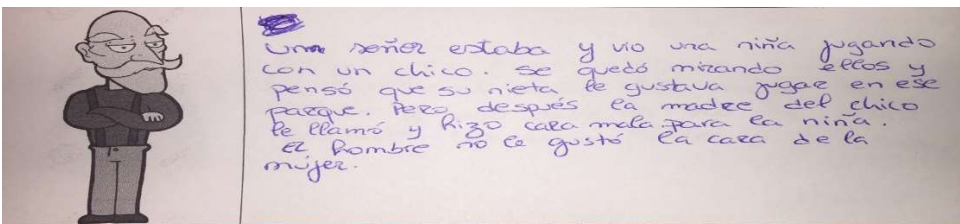 Un señor estaba y vio una niña jugando
con un chico. se quedó mirando ellos y
pensó que su nieta le gustava jugar en ese
parque. Pero después la madre del chico
le llamó y hizo cara mala para la niña.
El hombre no le gustó la cara de la
mújer.